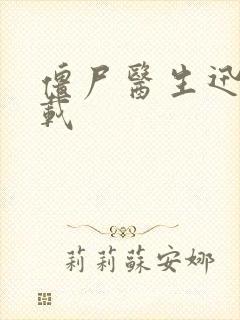 僵尸醫生迅
載
莉莉蘇安娜